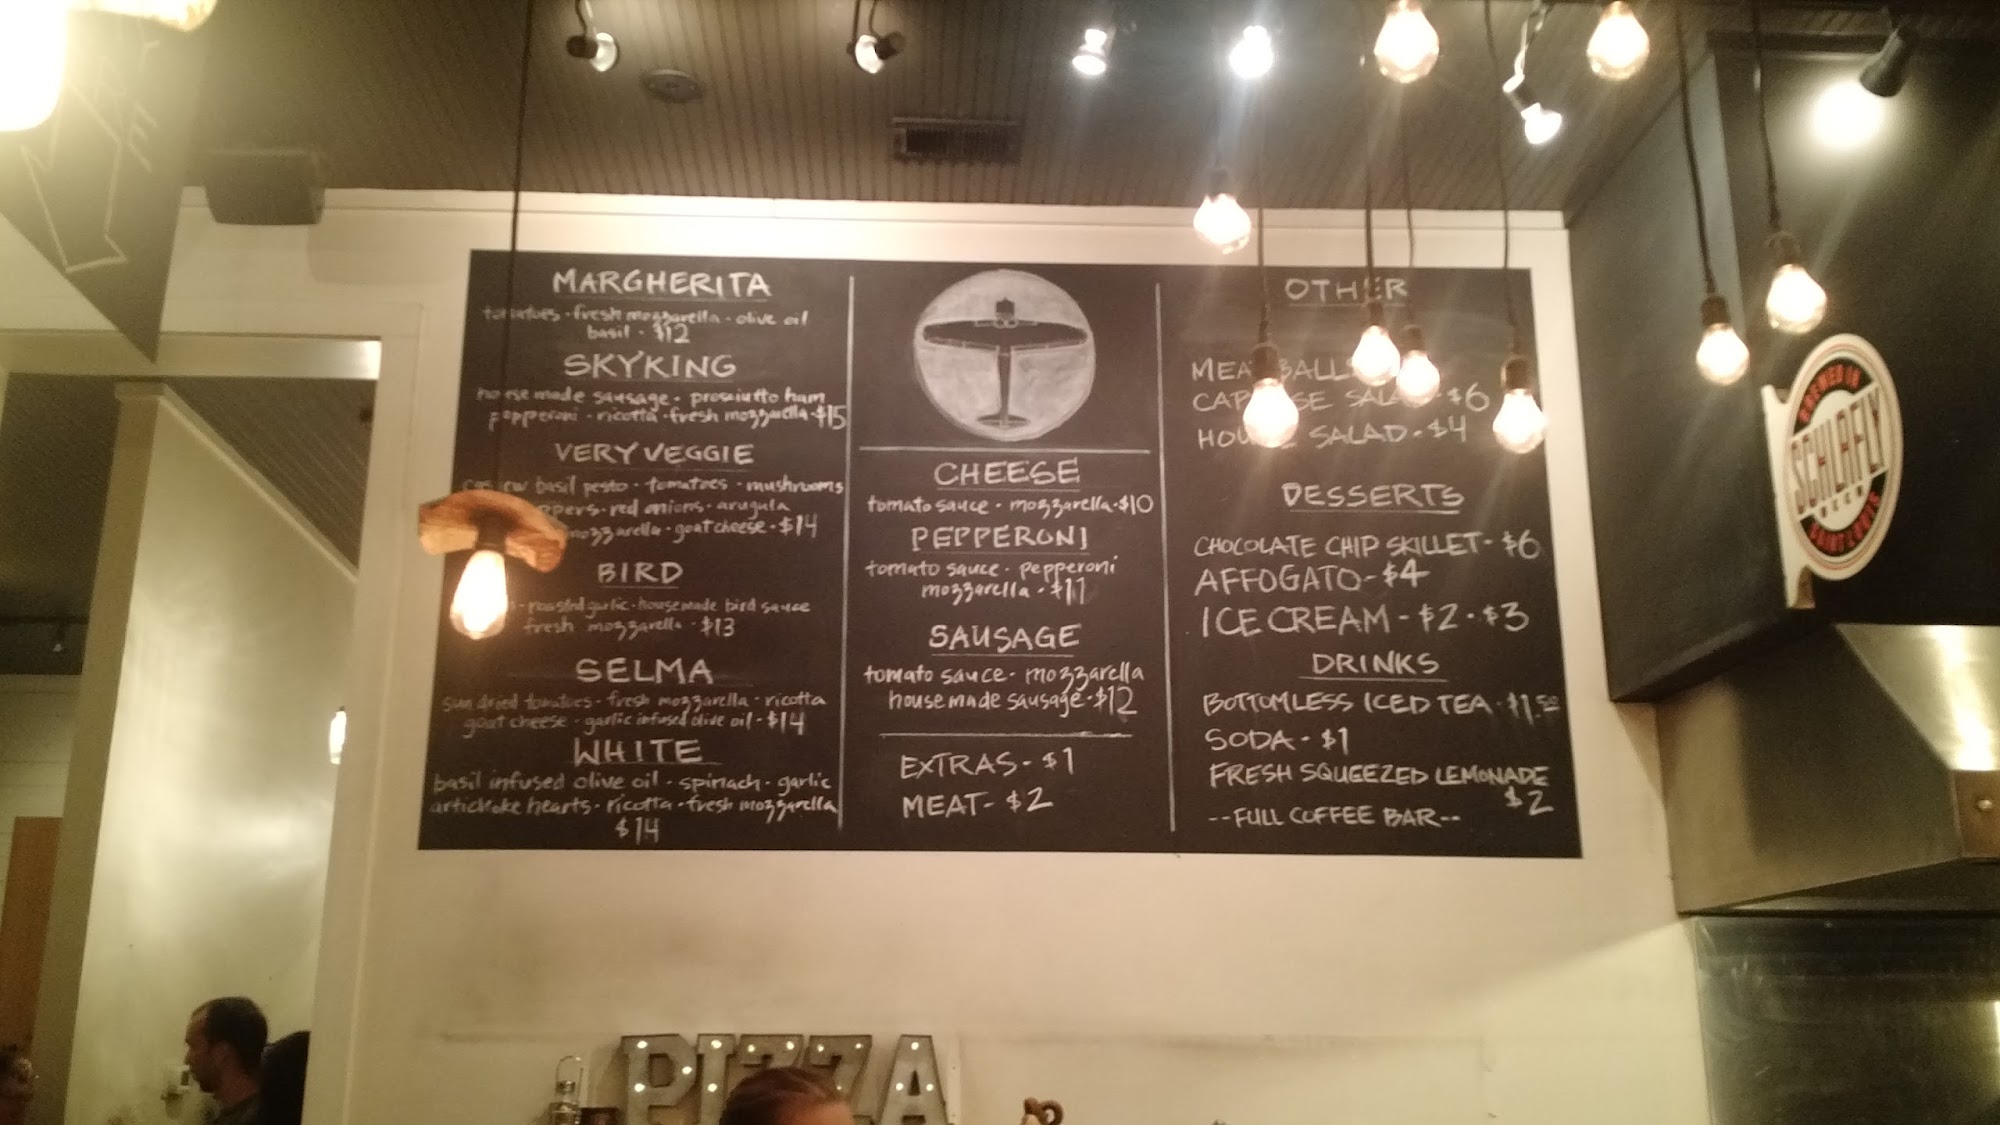 MARGHERITA
tomatoes · fresh mozzarella · olive oil
basil · $12
SKYKING
house made sausage · prosciutto ham
pepperoni · ricotta · fresh mozzarella · $15
VERY VEGGIE
basil pesto · tomatoes · mushrooms
red onions · arugula
mozzarella · goat cheese · $14
BIRD
roasted garlic · house made bird sauce
fresh mozzarella · $13
SELMA
sun dried tomatoes · fresh mozzarella · ricotta
goat cheese · garlic infused olive oil · $14
WHITE
basil infused olive oil · spinach · garlic
artichoke hearts · ricotta · fresh mozzarella
$14
CHEESE
tomato sauce · mozzarella · $10
PEPPERONI
tomato sauce · pepperoni
mozzarella · $11
SAUSAGE
tomato sauce · mozzarella
house made sausage · $12
EXTRAS - $1
MEAT - $2
OTHER
MEATBALLS
CAPRESE SALAD - $6
HOUSE SALAD - $4
DESSERTS
CHOCOLATE CHIP SKILLET - $6
AFFOGATO - $4
ICE CREAM - $2 · $3
DRINKS
BOTTOMLESS ICED TEA - $1.50
SODA - $1
FRESH SQUEEZED LEMONADE
$2
--FULL COFFEE BAR--
BREWED IN
SCHLAFLY
BEER
SAINT LOUIS
PIZZA